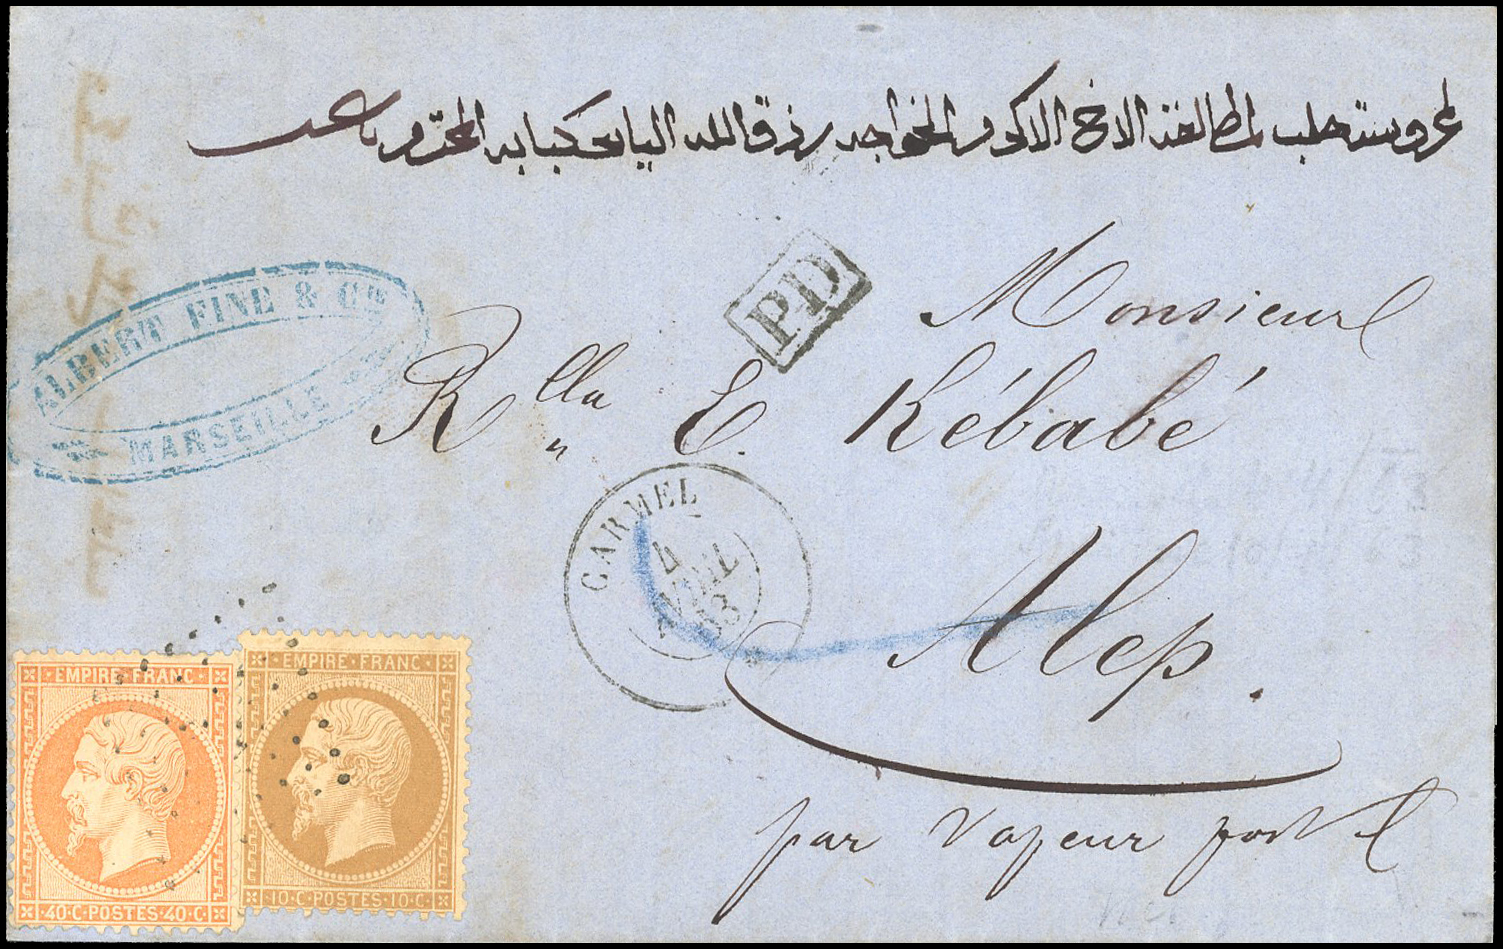 لمحروسة حلب لمطالعة الاخ الاكرم الخواجه رزق الله الياس كبابه المحترم
PD
Monsieur
ALBERT FINE & Cie
MARSEILLE
Rlla E. Kébabé
CARMEL
4
AVRIL
63
Alep.
par vapeur postal
EMPIRE FRANC
40·C·POSTES·40·C
EMPIRE·FRANC
10·C·POSTES·10·C